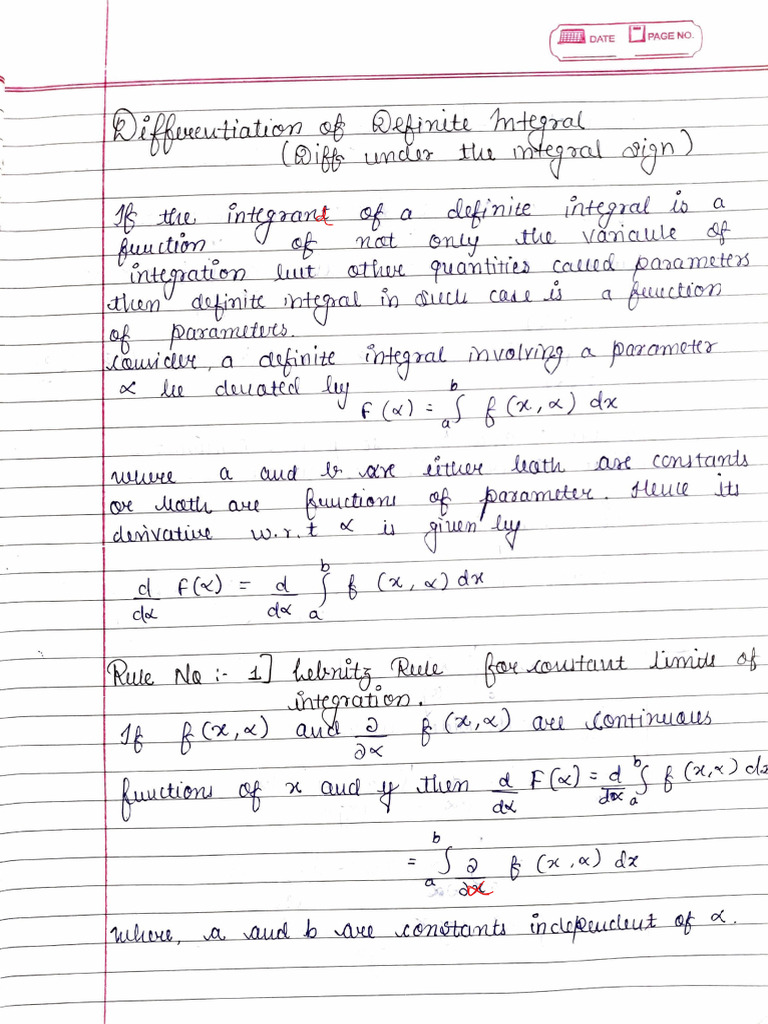 DATE PAGE NO.
Differentiation of Definite Integral
(Diff under the integral sign)
If the integrand of a definite integral is a
function of not only the variable of
integration but other quantities called parameters
then definite integral in such case is a function
of parameters.
Consider, a definite integral involving a parameter
∝ be denoted by
F(∝) = ∫_a^b f(x, ∝) dx
where a and b are either both are constants
or both are functions of parameter. Hence its
derivative w.r.t ∝ is given by
d/d∝ F(∝) = d/d∝ ∫_a^b f (x, ∝) dx
Rule No :- 1] Lebnitz Rule for constant limits of
integration.
If f(x, ∝) and ∂/∂∝ f(x, ∝) are continuous
functions of x and y then d/d∝ F(∝) = d/d∝ ∫_a^b f(x, ∝) dx
= ∫_a^b ∂/∂∝ f (x, ∝) dx
where, a and b are constants independent of ∝.